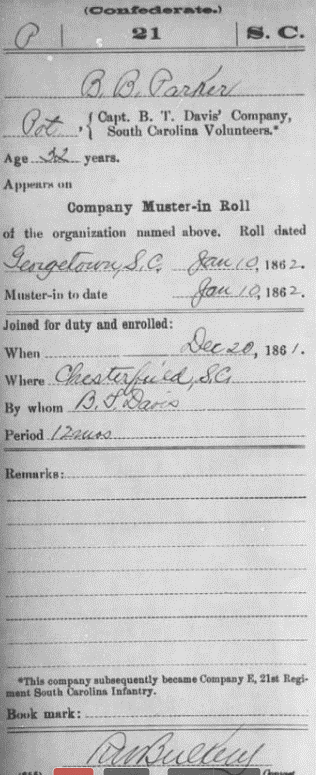 (Confederate.)
P 21 S. C.
B. B. Parker
Pvt., { Capt. B. T. Davis' Company, South Carolina Volunteers.*
Age 32 years.
Appears on
Company Muster-in Roll
of the organization named above. Roll dated
Georgetown, S.C. Jan 10, 1862.
Muster-in to date Jan 10, 1862.
Joined for duty and enrolled:
When Dec 20, 1861.
Where Chesterfield, S.C.
By whom B. T. Davis
Period 12 mos
Remarks:
*This company subsequently became Company E, 21st Regi-
ment South Carolina Infantry.
Book mark: